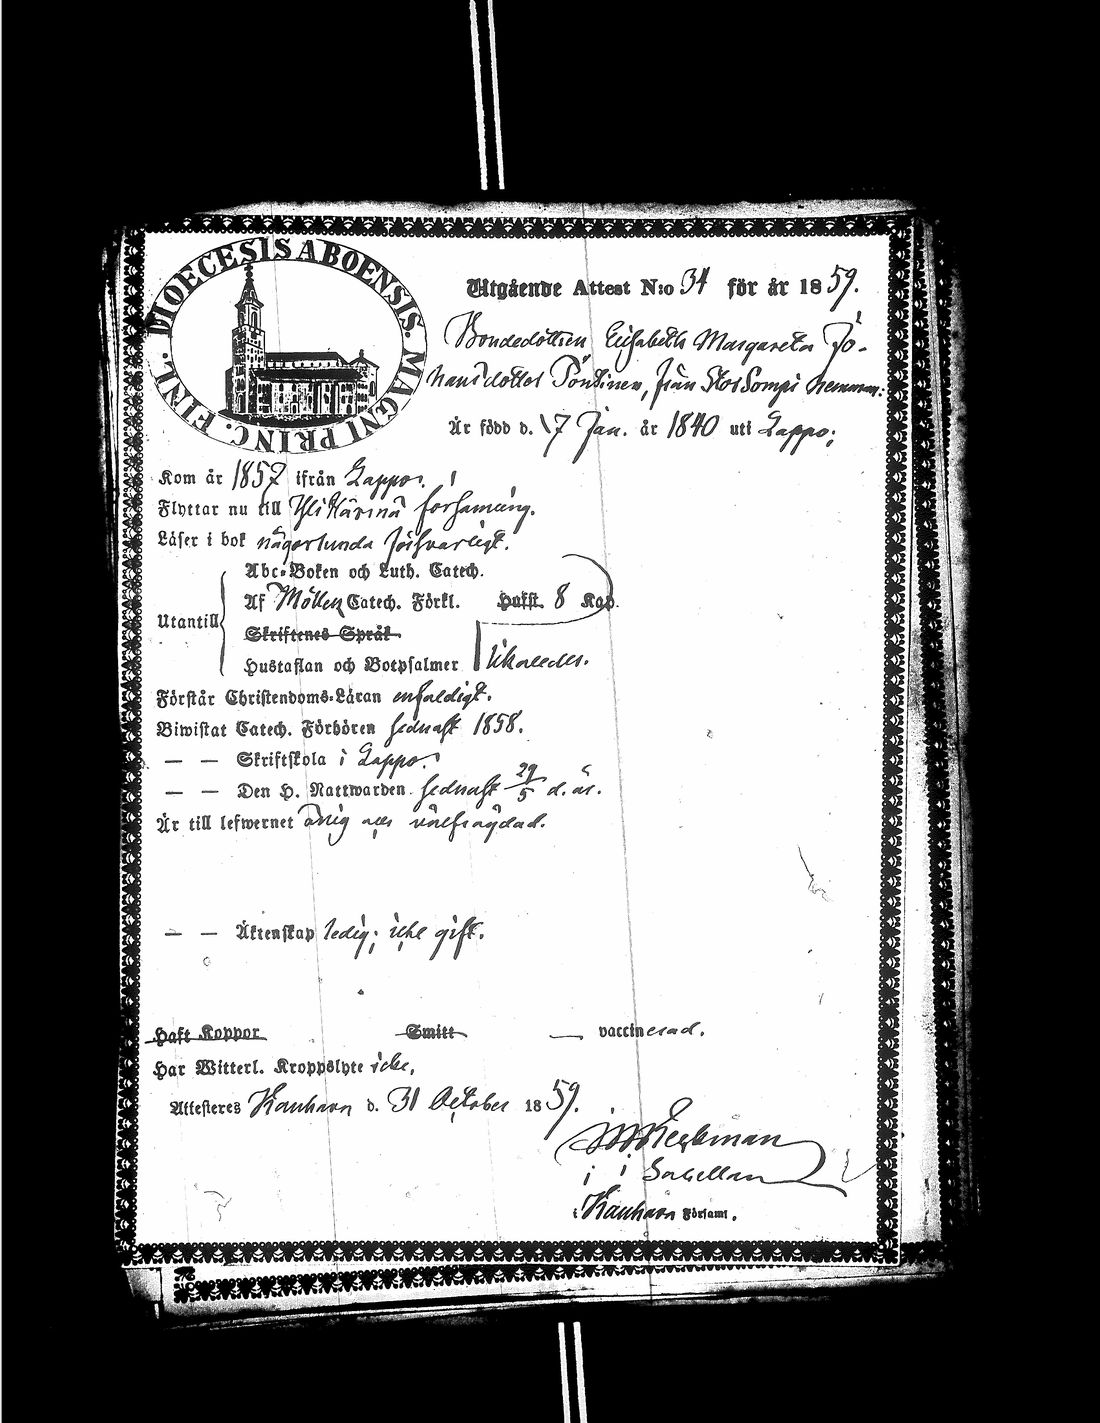 DIOECESIS ABOENSIS. MAGNI PRINC. FINL.
Utgående Attest N:o 31 för år 1859.
Bondedottren Elisabeth Margareta Jo-
hansdotter Pöntinen, från Stor Sompi hemman:
Är född d. 17 Jan. år 1840 uti Lappo;
Kom år 1857 ifrån Lappo.
Flyttar nu till Ylikärmä församling.
Läser i bok någorlunda försvarligt.
Abc-Boken och Luth. Catech.
Af Möllers Catech. Förkl. Hufst. 8 Kap.
Utantill
Skriftenes Språk
Hustaflan och Botpsalmer likaledes.
Förstår Christendoms-Läran enfaldigt.
Biwistat Catech. Förhören sednast 1858.
— — Skriftskola i Lappo.
— — Den H. Nattwarden sednast 29/5 d. år.
Är till lefwernet ärlig och välfrägdad.
— — Äktenskap ledig; icke gift.
Haft Koppor Smitt — vaccinerad.
Har Witterl. Kroppslyte icke,
Attesteres Kauhava d. 31 October 1859.
Sacellan
i Kauhava Församl.